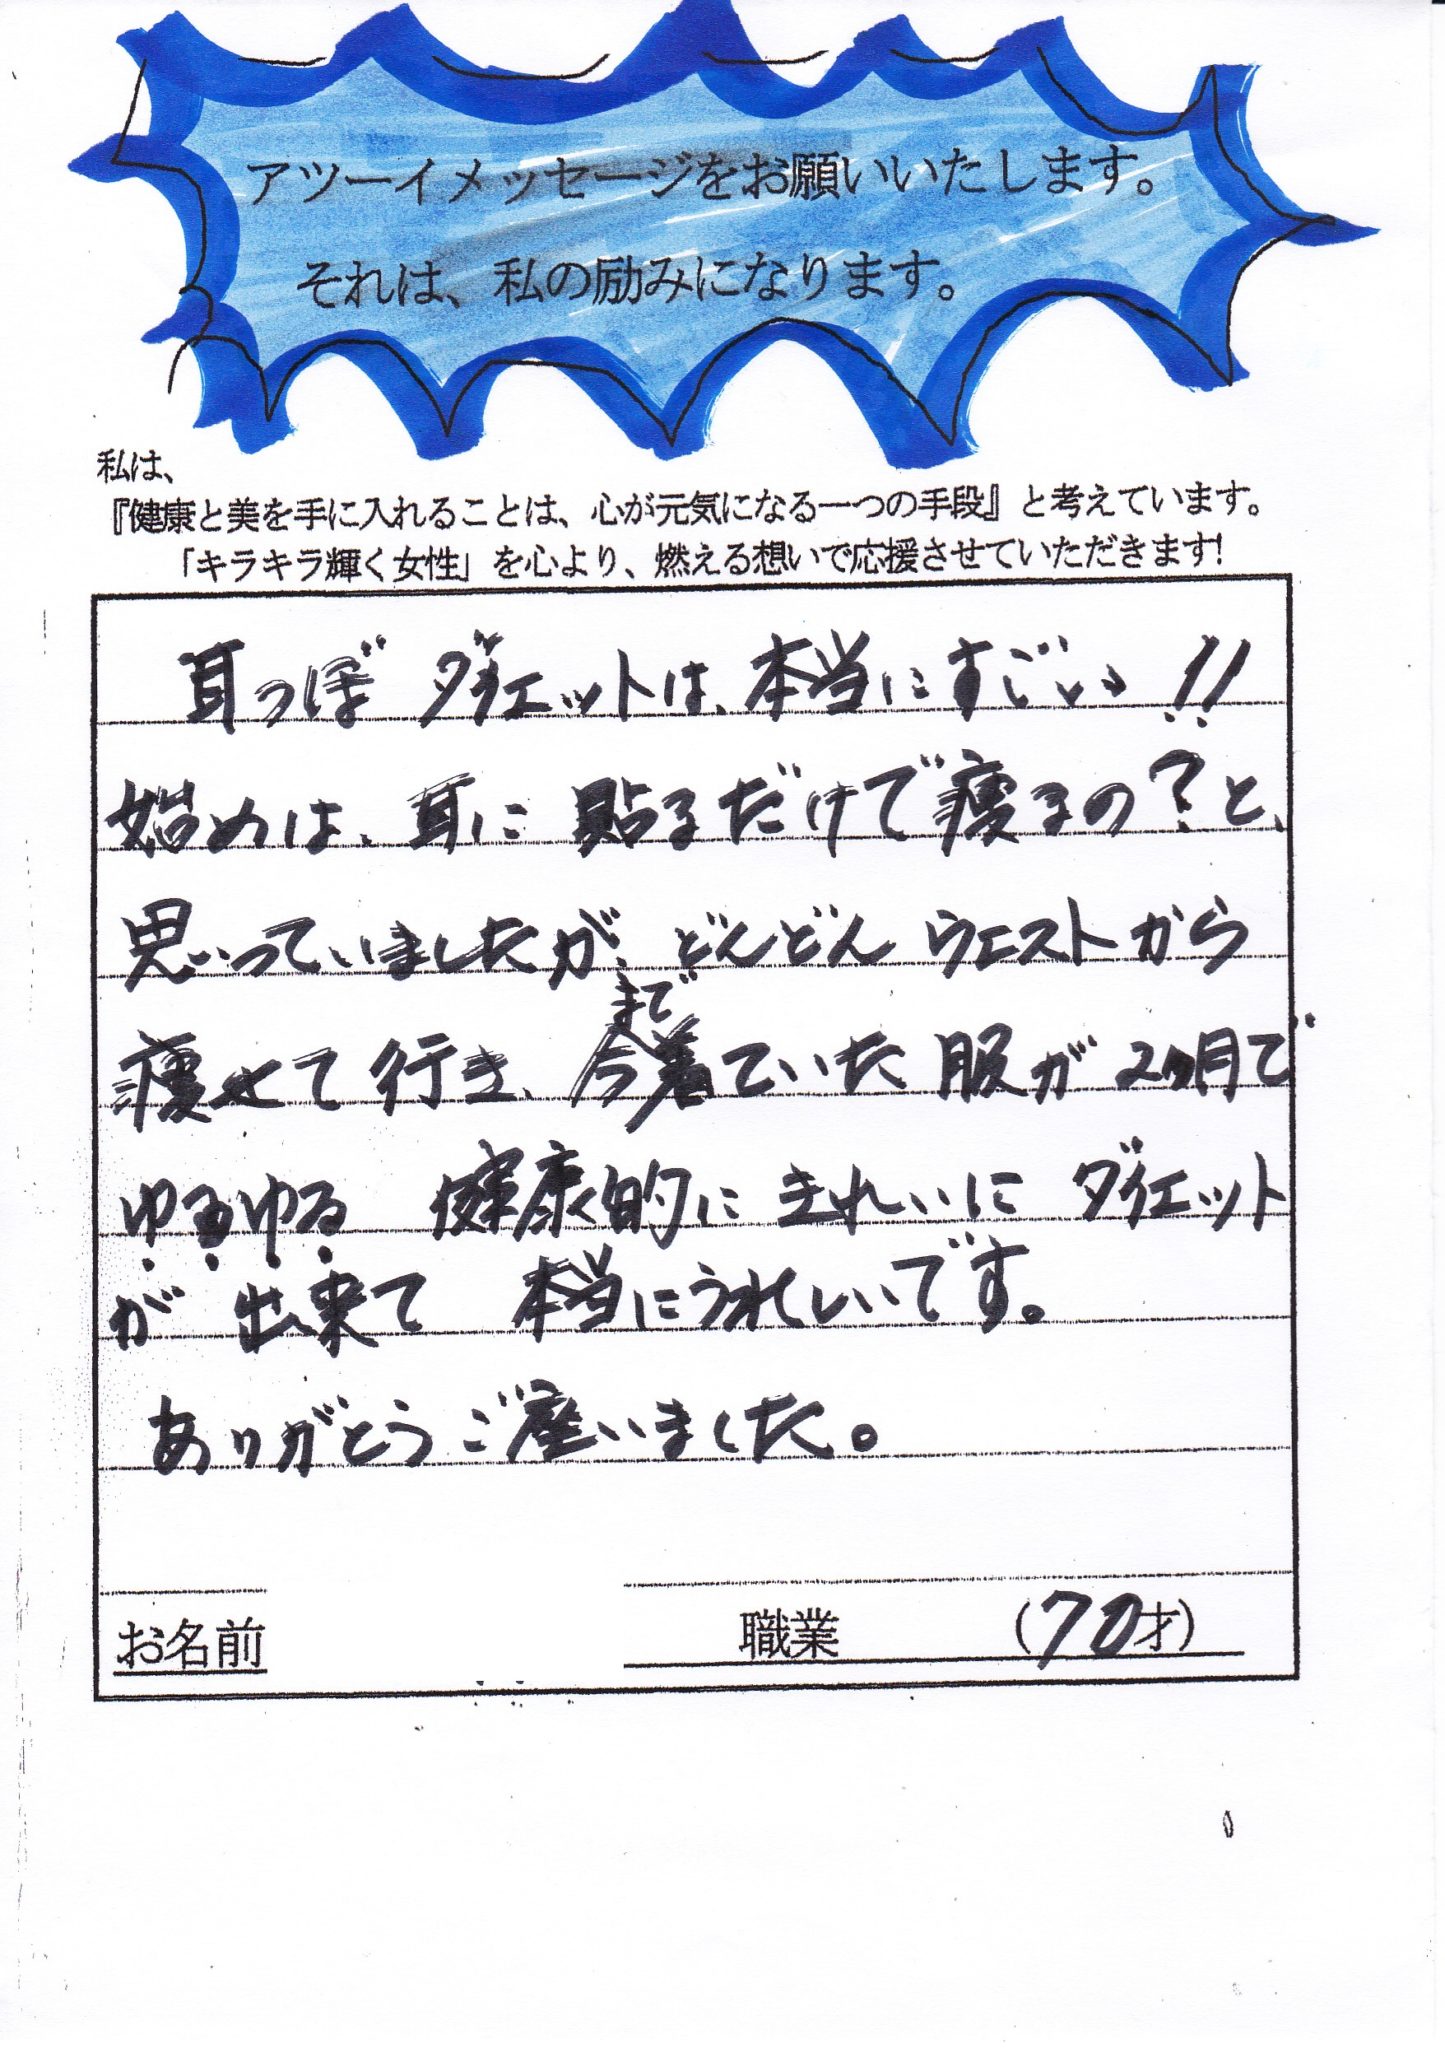 アツーイメッセージをお願いいたします。
それは、私の励みになります。
私は、
『健康と美を手に入れることは、心が元気になる一つの手段』と考えています。
「キラキラ輝く女性」を心より、燃える想いで応援させていただきます!
耳つぼダイエットは、本当にすごい!!
始めは、耳に貼るだけで痩るの?と、
思いっていましたが、どんどんウエストから
痩せて行き、今まで着ていた服が2ヶ月で
ゆるゆる 健康的にきれいにダイエット
が出来て 本当にうれしいです。
ありがとうご座いました。
お名前 職業 (70才)